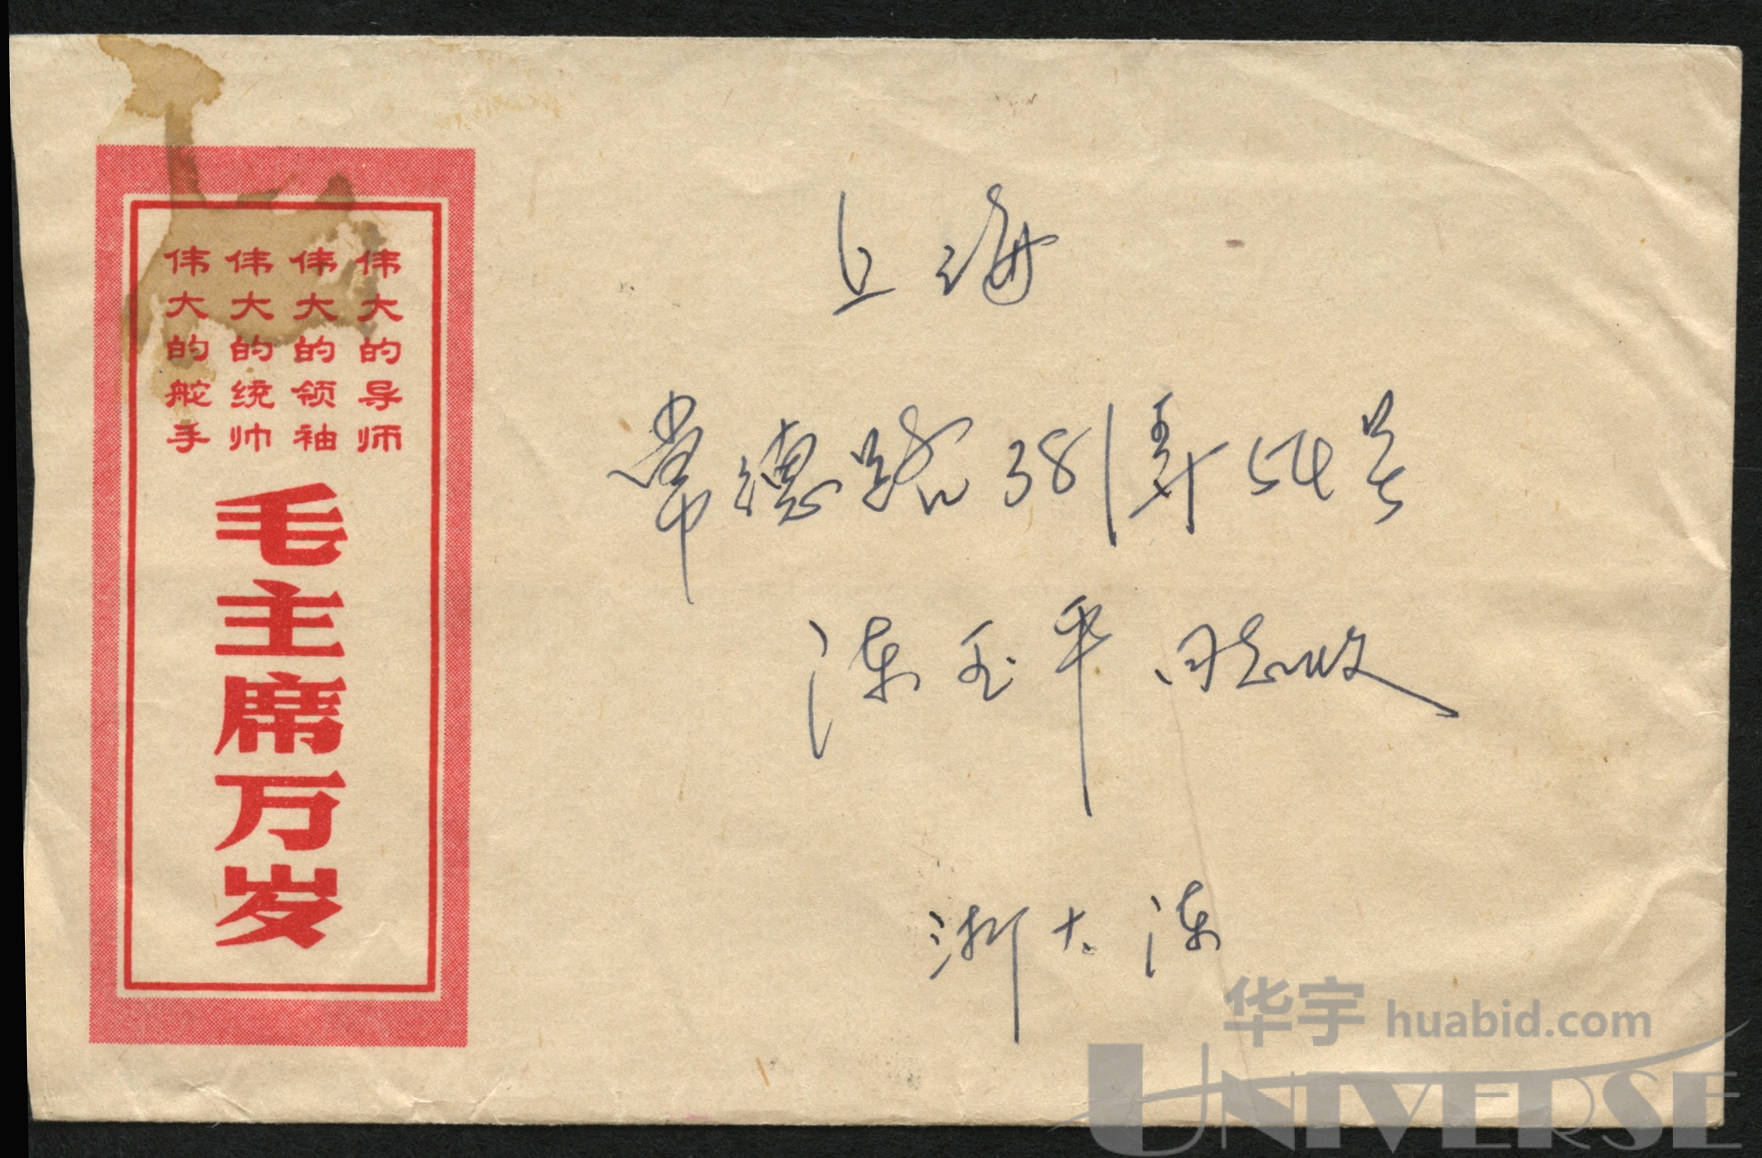 伟大的导师
伟大的领袖
伟大的统帅
伟大的舵手
毛主席万岁
上海
常德路381弄54号
陈玉平同志收
浙大 陈
华宇 huabid.com
UNIVERSE